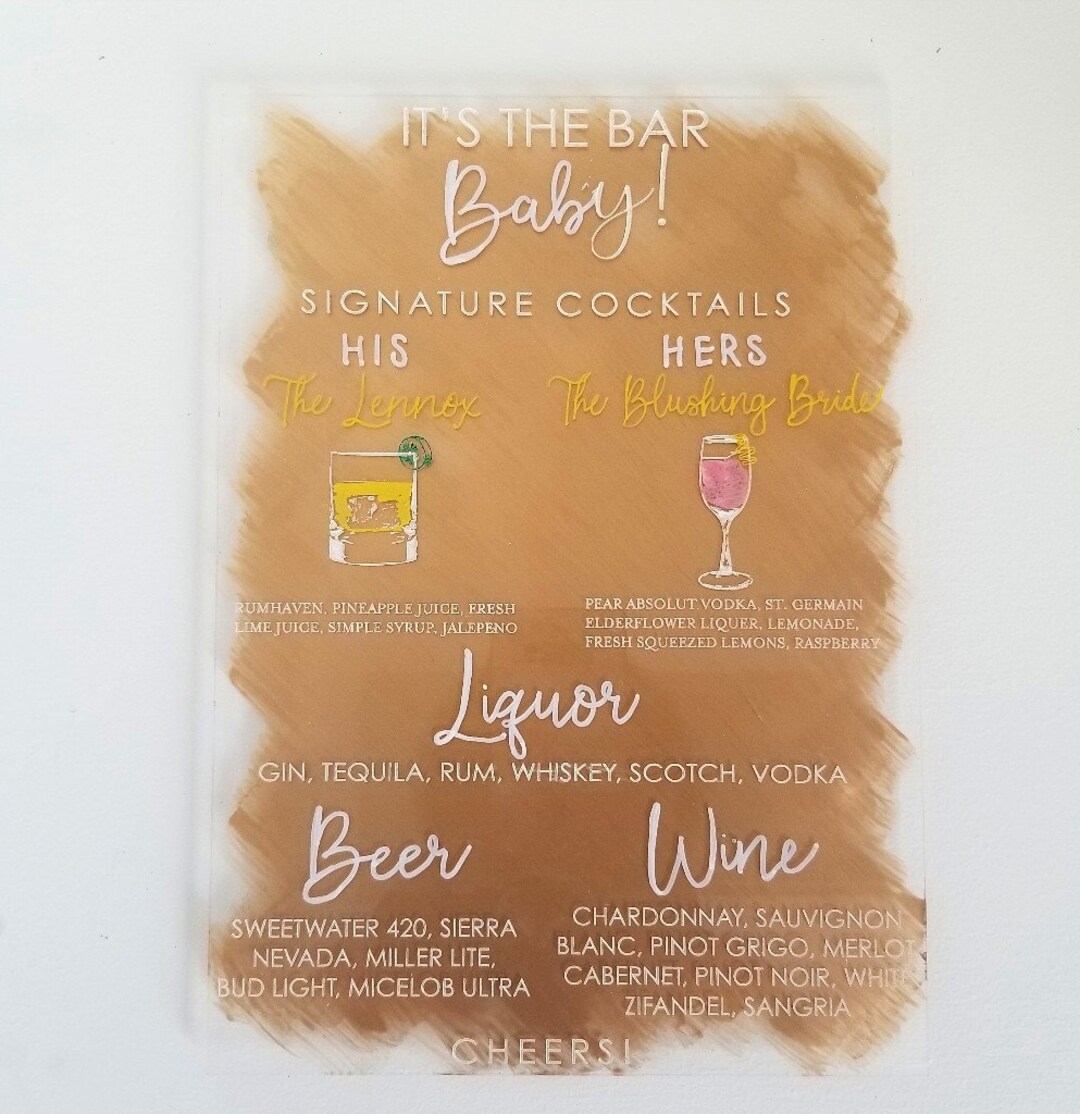 IT'S THE BAR
Baby!
SIGNATURE COCKTAILS
HIS
The Lennox
HERS
The Blushing Bride
RUMHAVEN, PINEAPPLE JUICE, FRESH
LIME JUICE, SIMPLE SYRUP, JALEPENO
PEAR ABSOLUT VODKA, ST. GERMAIN
ELDERFLOWER LIQUER, LEMONADE,
FRESH SQUEEZED LEMONS, RASPBERRY
Liquor
GIN, TEQUILA, RUM, WHISKEY, SCOTCH, VODKA
Beer
SWEETWATER 420, SIERRA
NEVADA, MILLER LITE,
BUD LIGHT, MICELOB ULTRA
Wine
CHARDONNAY, SAUVIGNON
BLANC, PINOT GRIGO, MERLOT
CABERNET, PINOT NOIR, WHITE
ZIFANDEL, SANGRIA
CHEERS!